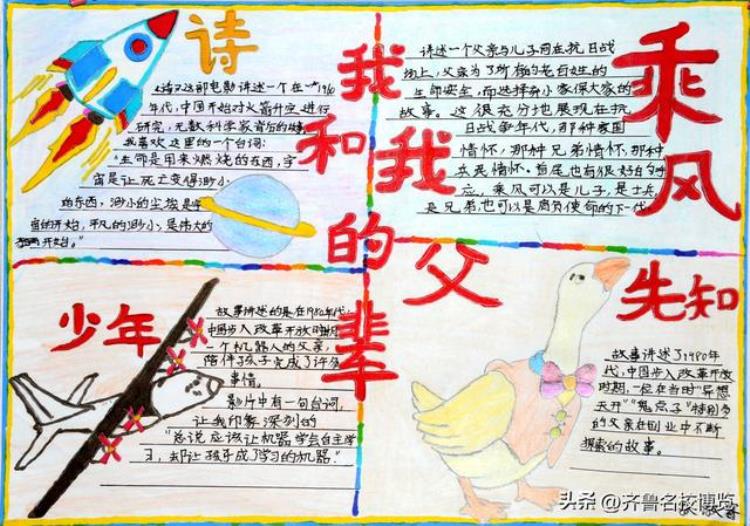 诗
《诗》这部电影讲述一个在一九60
年代,中国开始对火箭升空进行
研究,无数科学家背后的
我喜欢这里的一个台词:
"生命是用来燃烧的东西,宇
宙是让死亡变得渺小
的东西,渺小的尘埃是宇
宙的开始,平凡的渺小,是伟大的
开始。"
我和我的父辈
乘风
讲述一个父亲与儿子同在抗日战
场上,父亲为了所有的老百姓的
生命安全,而选择弃小家保大家的
故事。这很充分地展现在抗
日战争年代,那种家国
情怀,那种兄弟情怀,那种
士兵情怀。结尾也有很好的呼
应,乘风可以是儿子,是士兵
是兄弟,也可以是肩负使命的下一代
少年
故事讲述的是在1980年代,
中国步入改革开放时期
一个机器人的父亲,
陪伴子孩子完成了许多
事情。
影片中有一句台词,
让我印象深刻的
"总说应该让机器学会自主学
习,却让孩子成了学习的机器."
先知
故事讲述了1980年
代,中国步入改革开放
时期,一位在当时"异想
天开""鬼点子"特别多
的父亲在创业中不断
探索的故事。
头条 @齐鲁名校博览